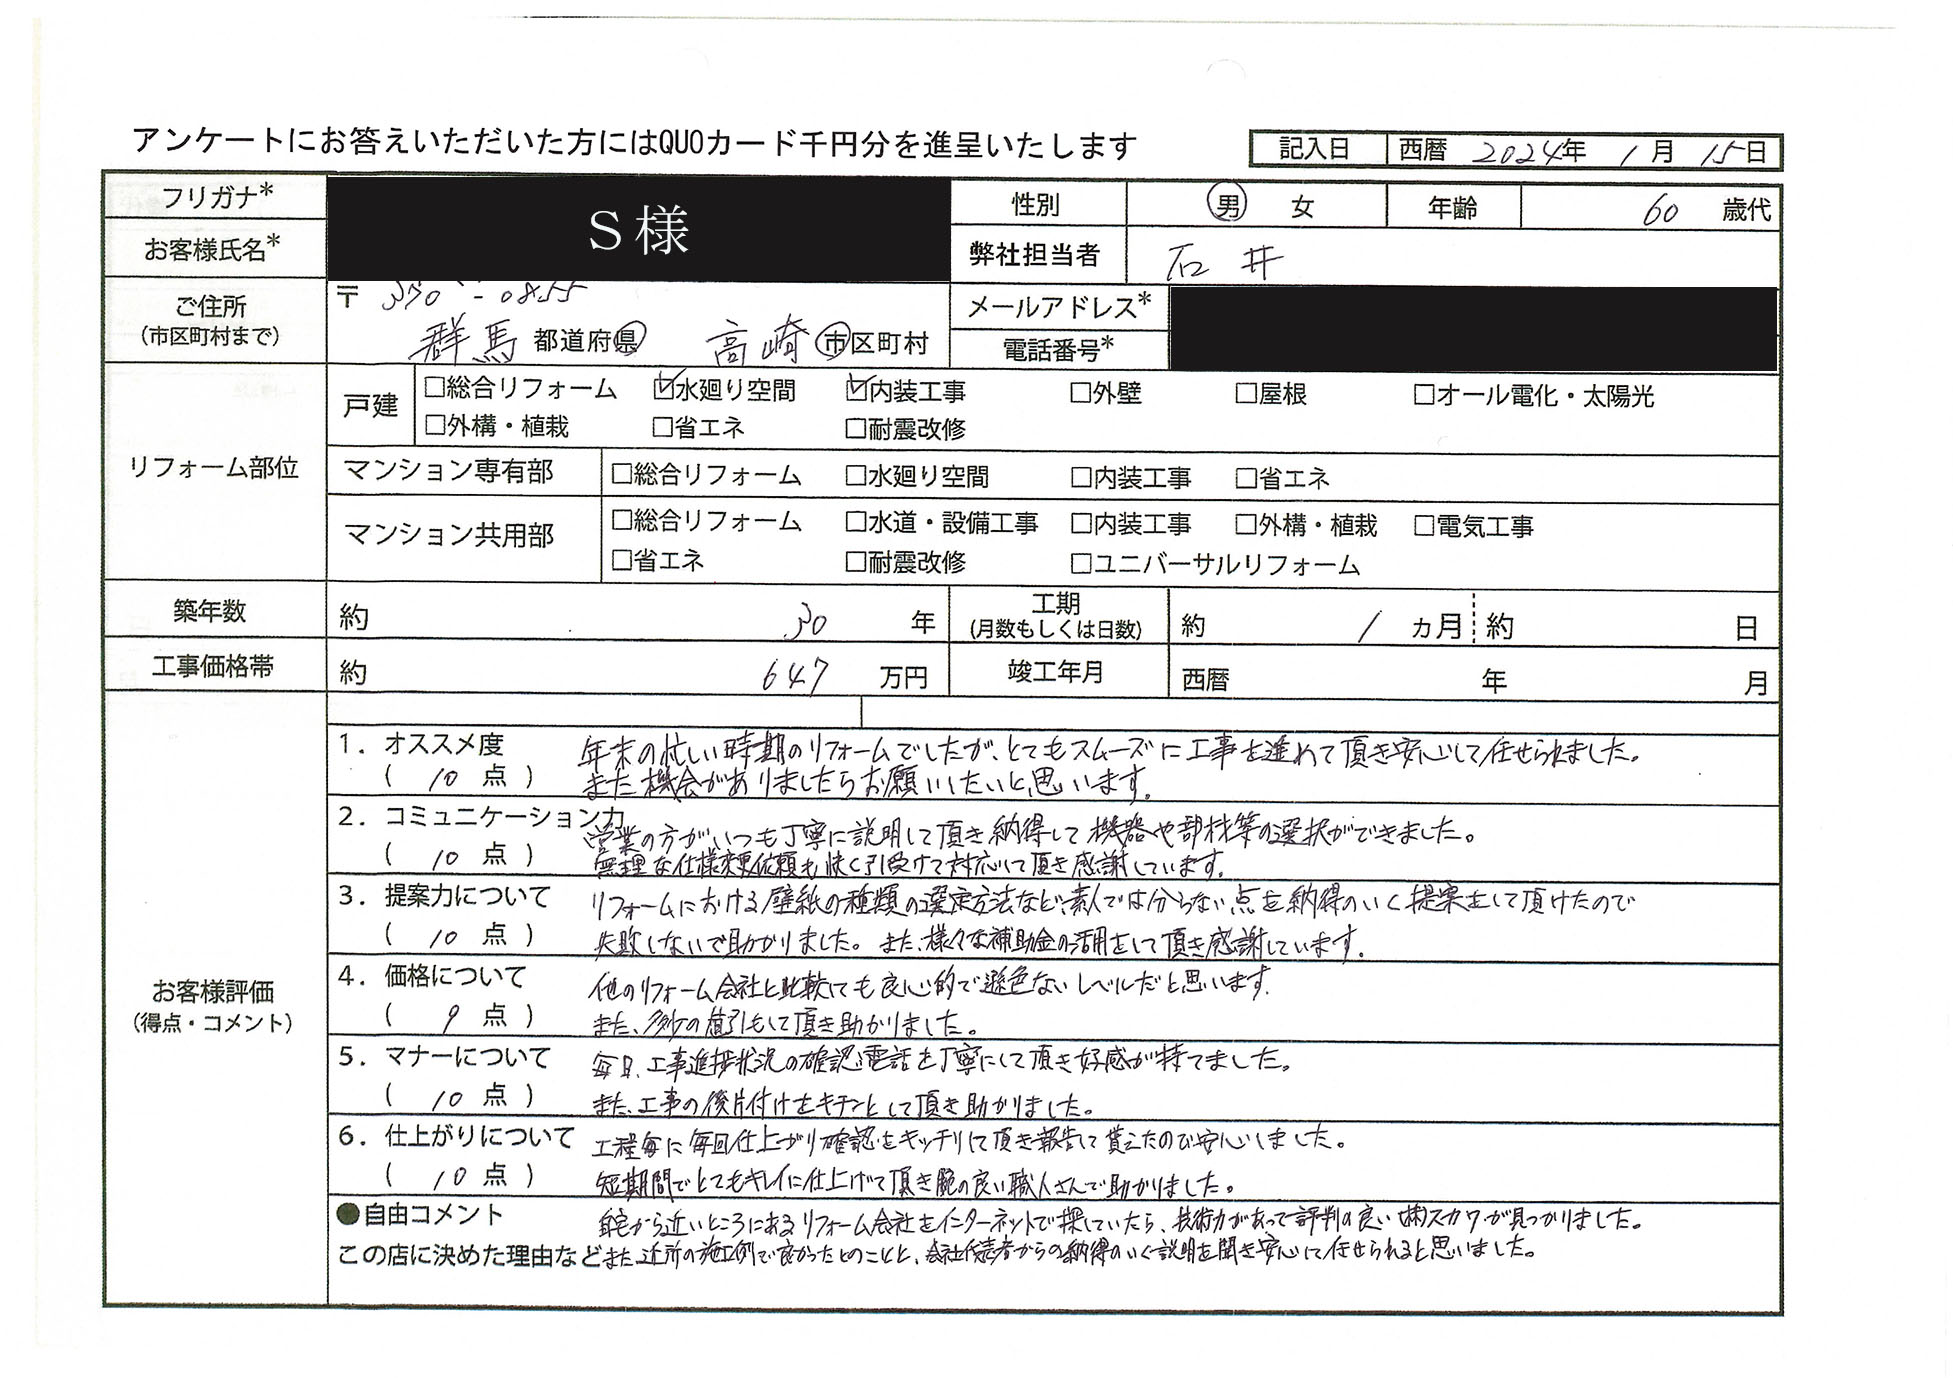 アンケートにお答えいただいた方にはQUOカード千円分を進呈いたします
記入日 西暦 2024年 1月 15日
フリガナ* S様 性別 男 女 年齢 60 歳代
お客様氏名* 弊社担当者 石井
ご住所 〒 370-0855 メールアドレス*
(市区町村まで) 群馬 都道府県 高崎 市区町村 電話番号*
リフォーム部位
戸建 □総合リフォーム ☑水廻り空間 ☑内装工事 □外壁 □屋根 □オール電化・太陽光
□外構・植栽 □省エネ □耐震改修
マンション専有部 □総合リフォーム □水廻り空間 □内装工事 □省エネ
マンション共用部 □総合リフォーム □水道・設備工事 □内装工事 □外構・植栽 □電気工事
□省エネ □耐震改修 □ユニバーサルリフォーム
築年数 約 30 年 工期 (月数もしくは日数) 約 1 カ月 約 日
工事価格帯 約 647 万円 竣工年月 西暦 年 月
お客様評価
(得点・コメント)
1. オススメ度 年末の忙しい時期のリフォームでしたが、とてもスムーズに工事を進めて頂き安心して任せられました。
( 10 点 ) また機会がありましたらお願いしたいと思います。
2. コミュニケーション力 営業の方がいつも丁寧に説明して頂き納得して機器や部材等の選択ができました。
( 10 点 ) 無理な仕様変更依頼も快く引受けて対応して頂き感謝しています。
3. 提案力について リフォームにおける壁紙の種類の選定方法など、素人では分らない点を納得のいく提案をして頂けたので
( 10 点 ) 失敗しないで助かりました。また、様々な補助金の活用をして頂き感謝しています。
4. 価格について 他のリフォーム会社と比較しても良心的で遜色ないレベルだと思います。
( 9 点 ) また、多少の値引もして頂き助かりました。
5. マナーについて 毎日、工事進捗状況の確認電話を丁寧にして頂き好感が持てました。
( 10 点 ) また、工事の後片付けをキチンとして頂き助かりました。
6. 仕上がりについて 工程毎に毎回仕上がり確認をキッチリして頂き報告して貰えたので安心しました。
( 10 点 ) 短期間でとてもキレイに仕上げて頂き腕の良い職人さんで助かりました。
●自由コメント 自宅から近いところにあるリフォーム会社をインターネットで探していたら、技術力があって評判の良い㈱スカワが見つかりました。
この店に決めた理由など また近所の施工例で良かったとのことと、会社代表者からの納得のいく説明を聞き安心して任せられると思いました。